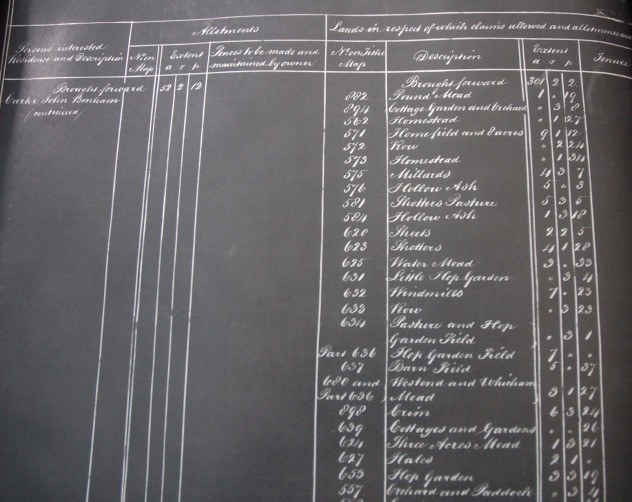 Allotments Lands in respect of which claims allowed and allotments ma
Persons interested
Residence and Description No on Map Extent a r p Fences to be made and maintained by owner No on Tithe Map Description Extent a r p Tenure
Brought forward 52 2 12 Brought forward 301 2 2
Carke John Bonham 882 Pound Mead 1 " 19
(continued) 894 Cottage Garden and Orchard " 3 8
562 Homestead " 1 27
571 Homefield and 8 acres 9 1 12
572 Row " 2 24
573 Homestead " 1 34
575 Millards 4 3 7
576 Hollow Ash 5 " 3
581 Shotters Pasture 5 3 5
584 Hollow Ash 1 3 18
620 Sheets 2 2 5
623 Shotters 4 1 28
625 Water Mead 3 " 33
631 Little Hop Garden " 3 4
632 Windmills 7 " 23
633 Row " 3 23
634 Pasture and Hop
Garden Field " 3 1
Part 636 Hop Garden Field 7 " "
637 Barn Field 5 " 37
680 and Westend and
Part 636 } Mead } 3 1 27
898 6 3 24
639 Cottages and Gardens " " 26
624 Three Acres Mead 1 3 21
627 Hales 2 1 "
653 Hop Garden 3 3 19
557 Orchard and Paddock